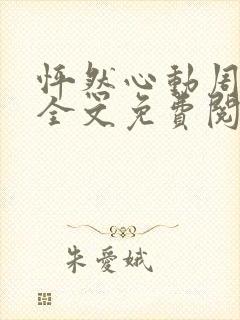 怦然心動周
全文免費閱
朱愛娥